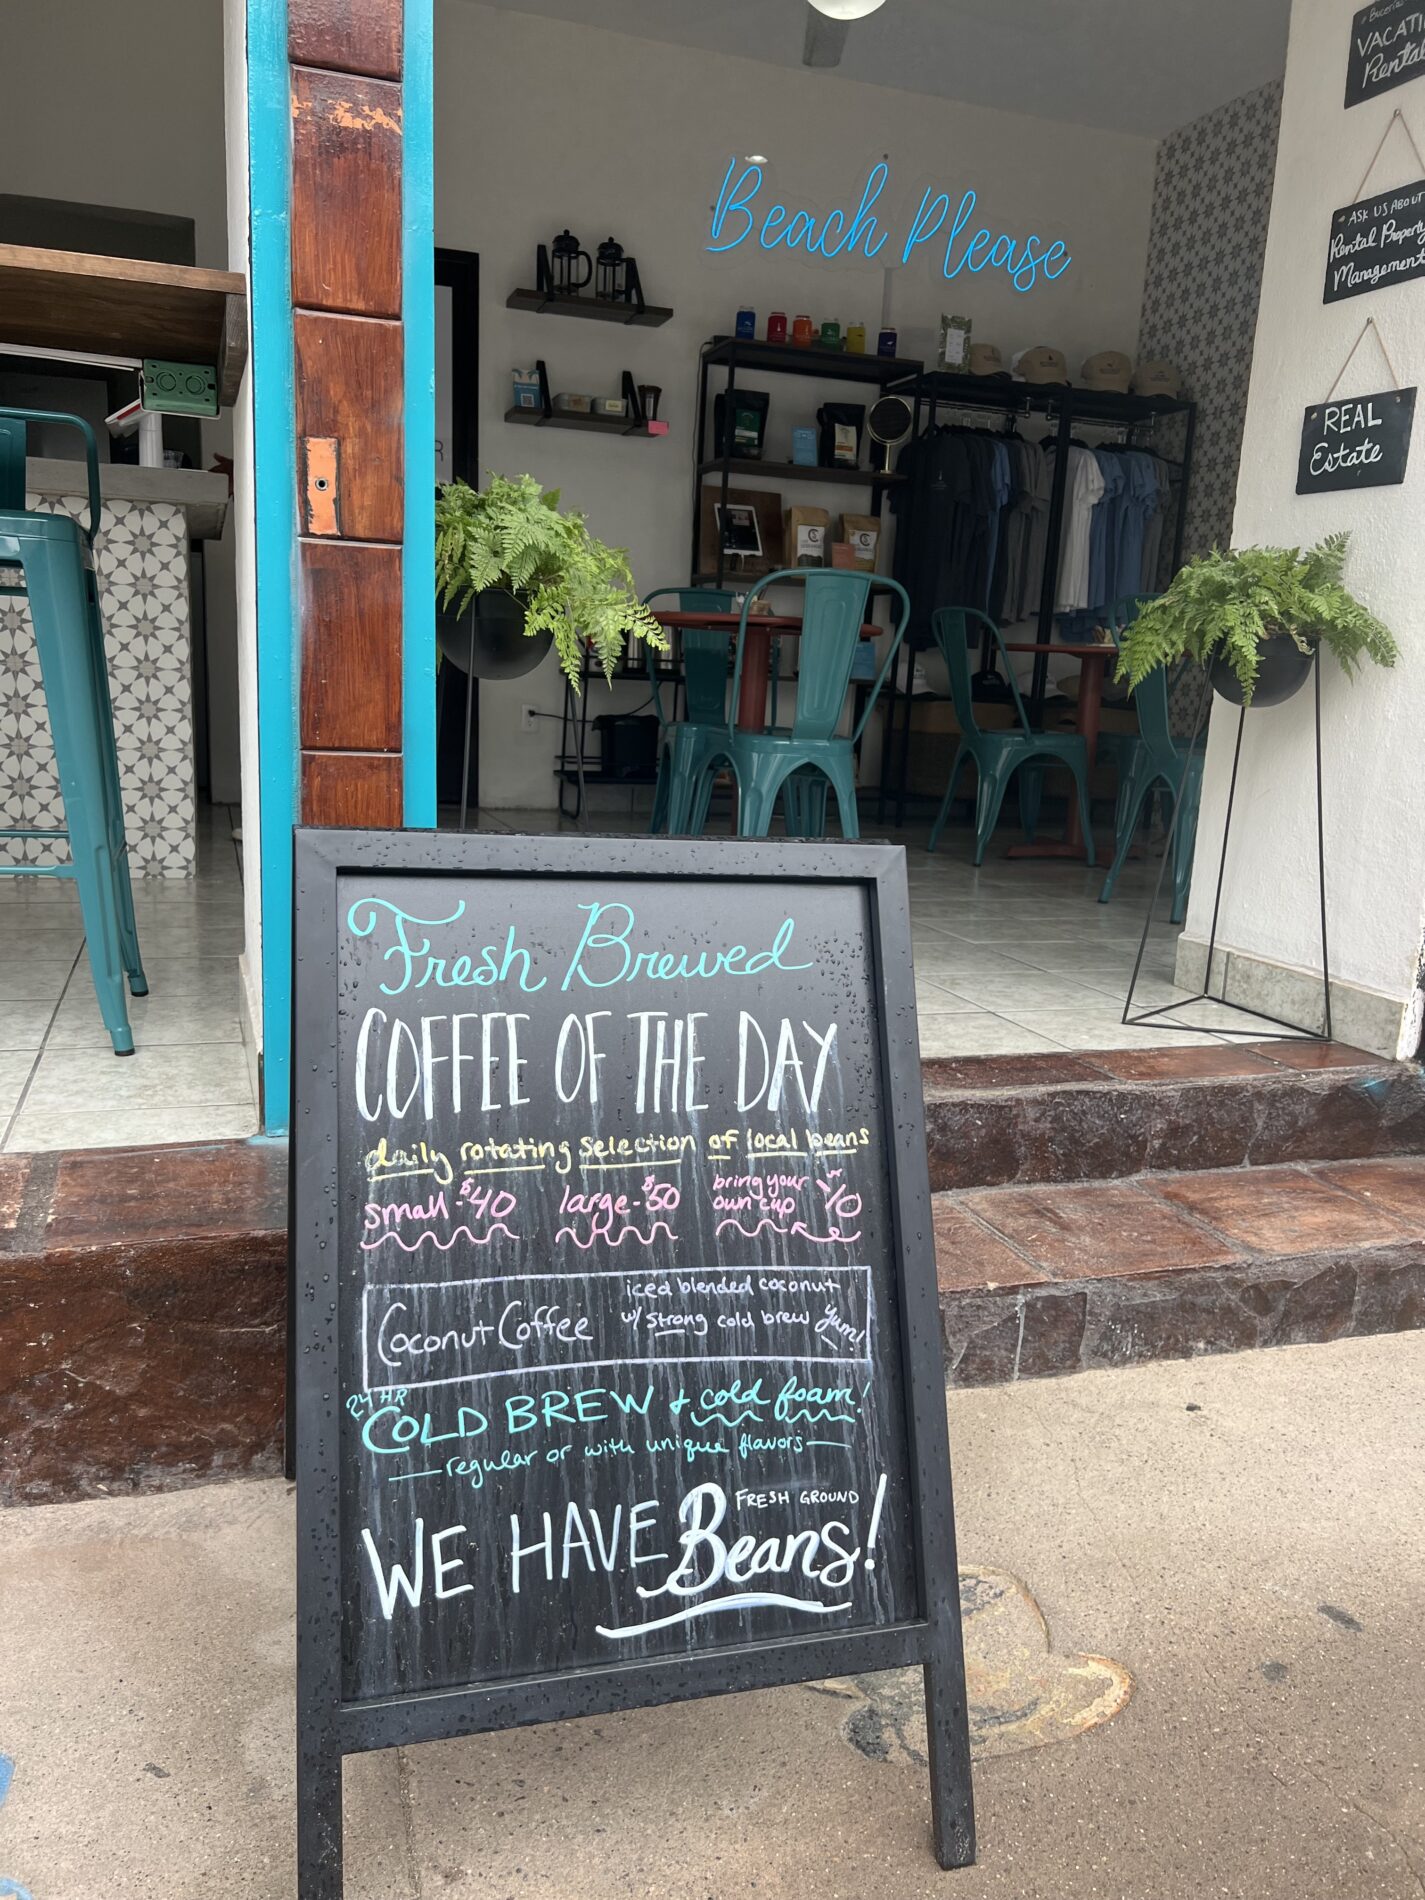 Beach Please
VACATI
Rental
ASK US ABOUT
Rental Property
Management
REAL
Estate
Fresh Brewed
COFFEE OF THE DAY
daily rotating selection of local beans
small - $40 large - $50 bring your own cup
COCONUT COFFEE
iced blended coconut
w/ strong cold brew Yum!
24 HR
COLD BREW + cold foam!
regular or with unique flavors
WE HAVE FRESH GROUND
Beans!